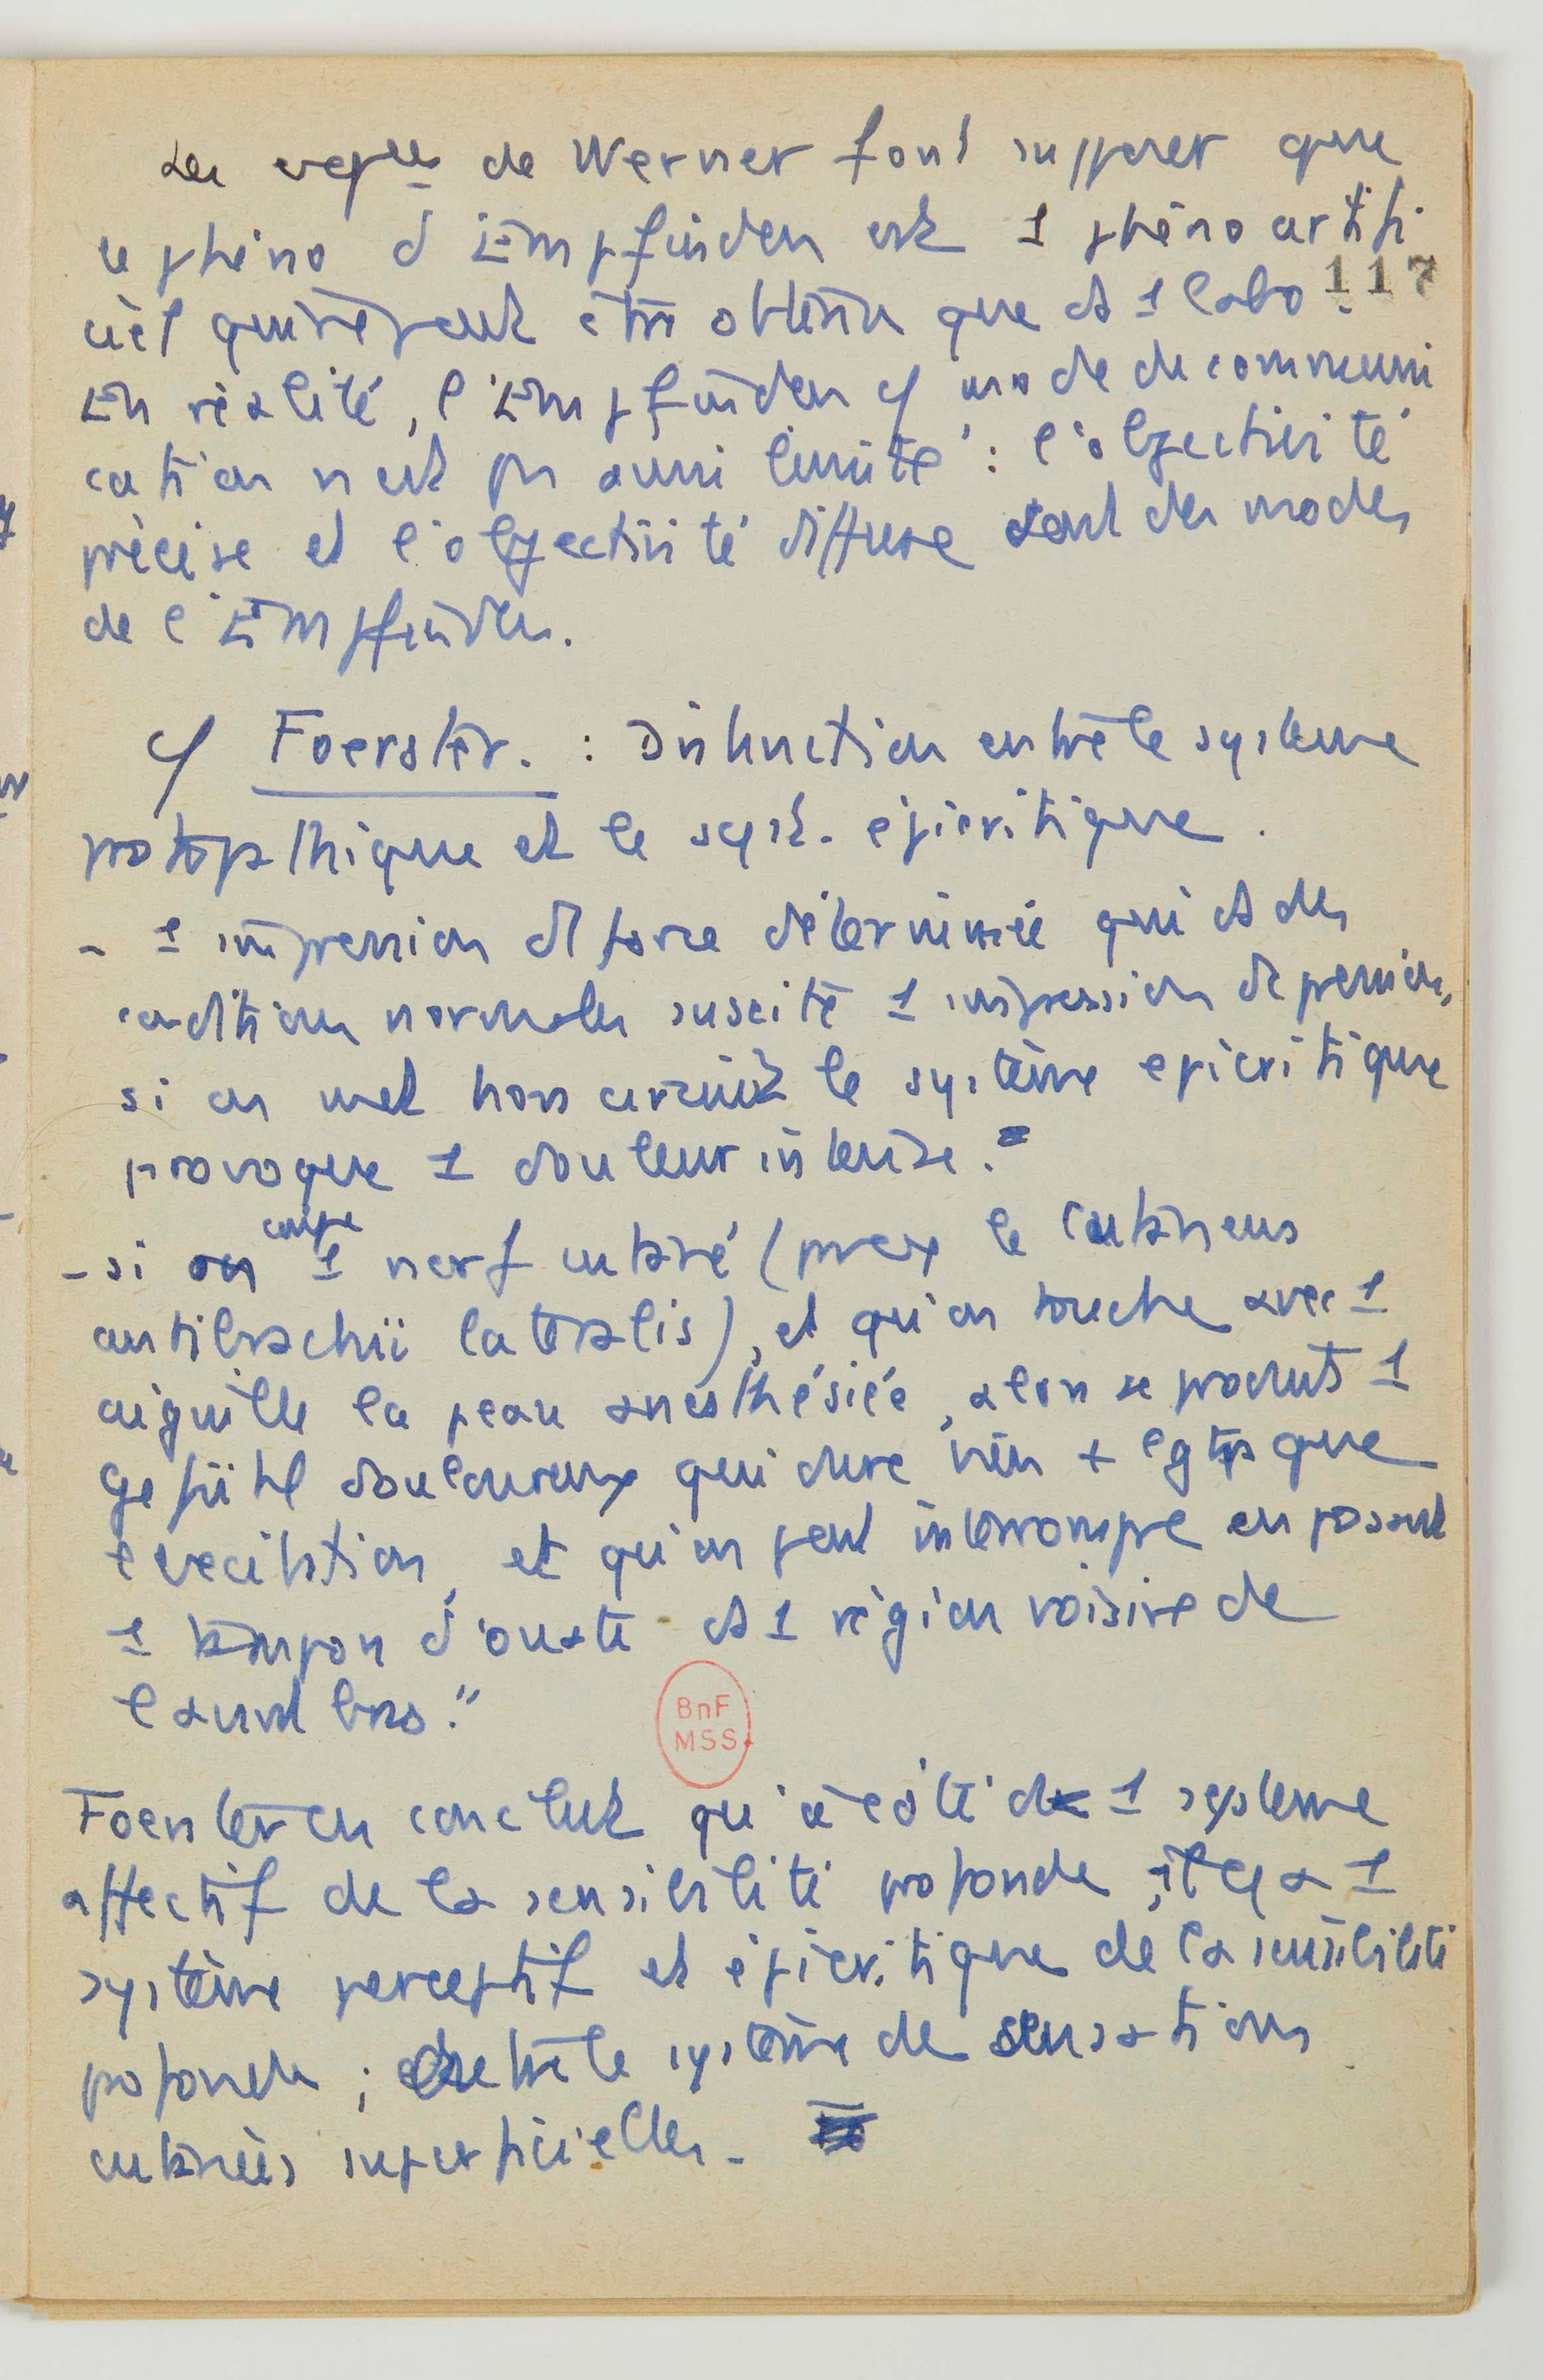 Les expces de Werner font supposer que
ce phéno d'Empfinden est 1 phéno artifi
117
ciel qui ne peut être obtenu que ds 1 labo.
En réalité, l'Empfinden cf mode de communi
cation n'est pas aussi limité : l'objectivité
précise et l'objectivité diffuse sont des modes
de l'Empfinden.
cf Foerster. : Distinction entre le système
protopathique et le syst. épicritique.
- 1 impression de force déterminée qui ds des
conditions normales suscite 1 impression de pression,
si on met hors circuit le système épicritique
provoque 1 douleur intense.
coupe
- si on 1 nerf cutané (par ex le Cutaneus
antibrachii lateralis), et qu'on touche avec 1
aiguille la peau anesthésiée, alors se produit 1
Gefühl douloureux qui dure bien + lgtps que
l'excitation, et qu'on peut interrompre en posant
1 tampon d'ouate ds 1 région voisine de
l'avant bras."
BnF
MSS
Foerster en conclut qu'à côté de 1 système
affectif de la sensibilité profonde, il y a 1
système perceptif et épicritique de la sensibilité
profonde ; entre le système de sensations
cutanées superficielles.